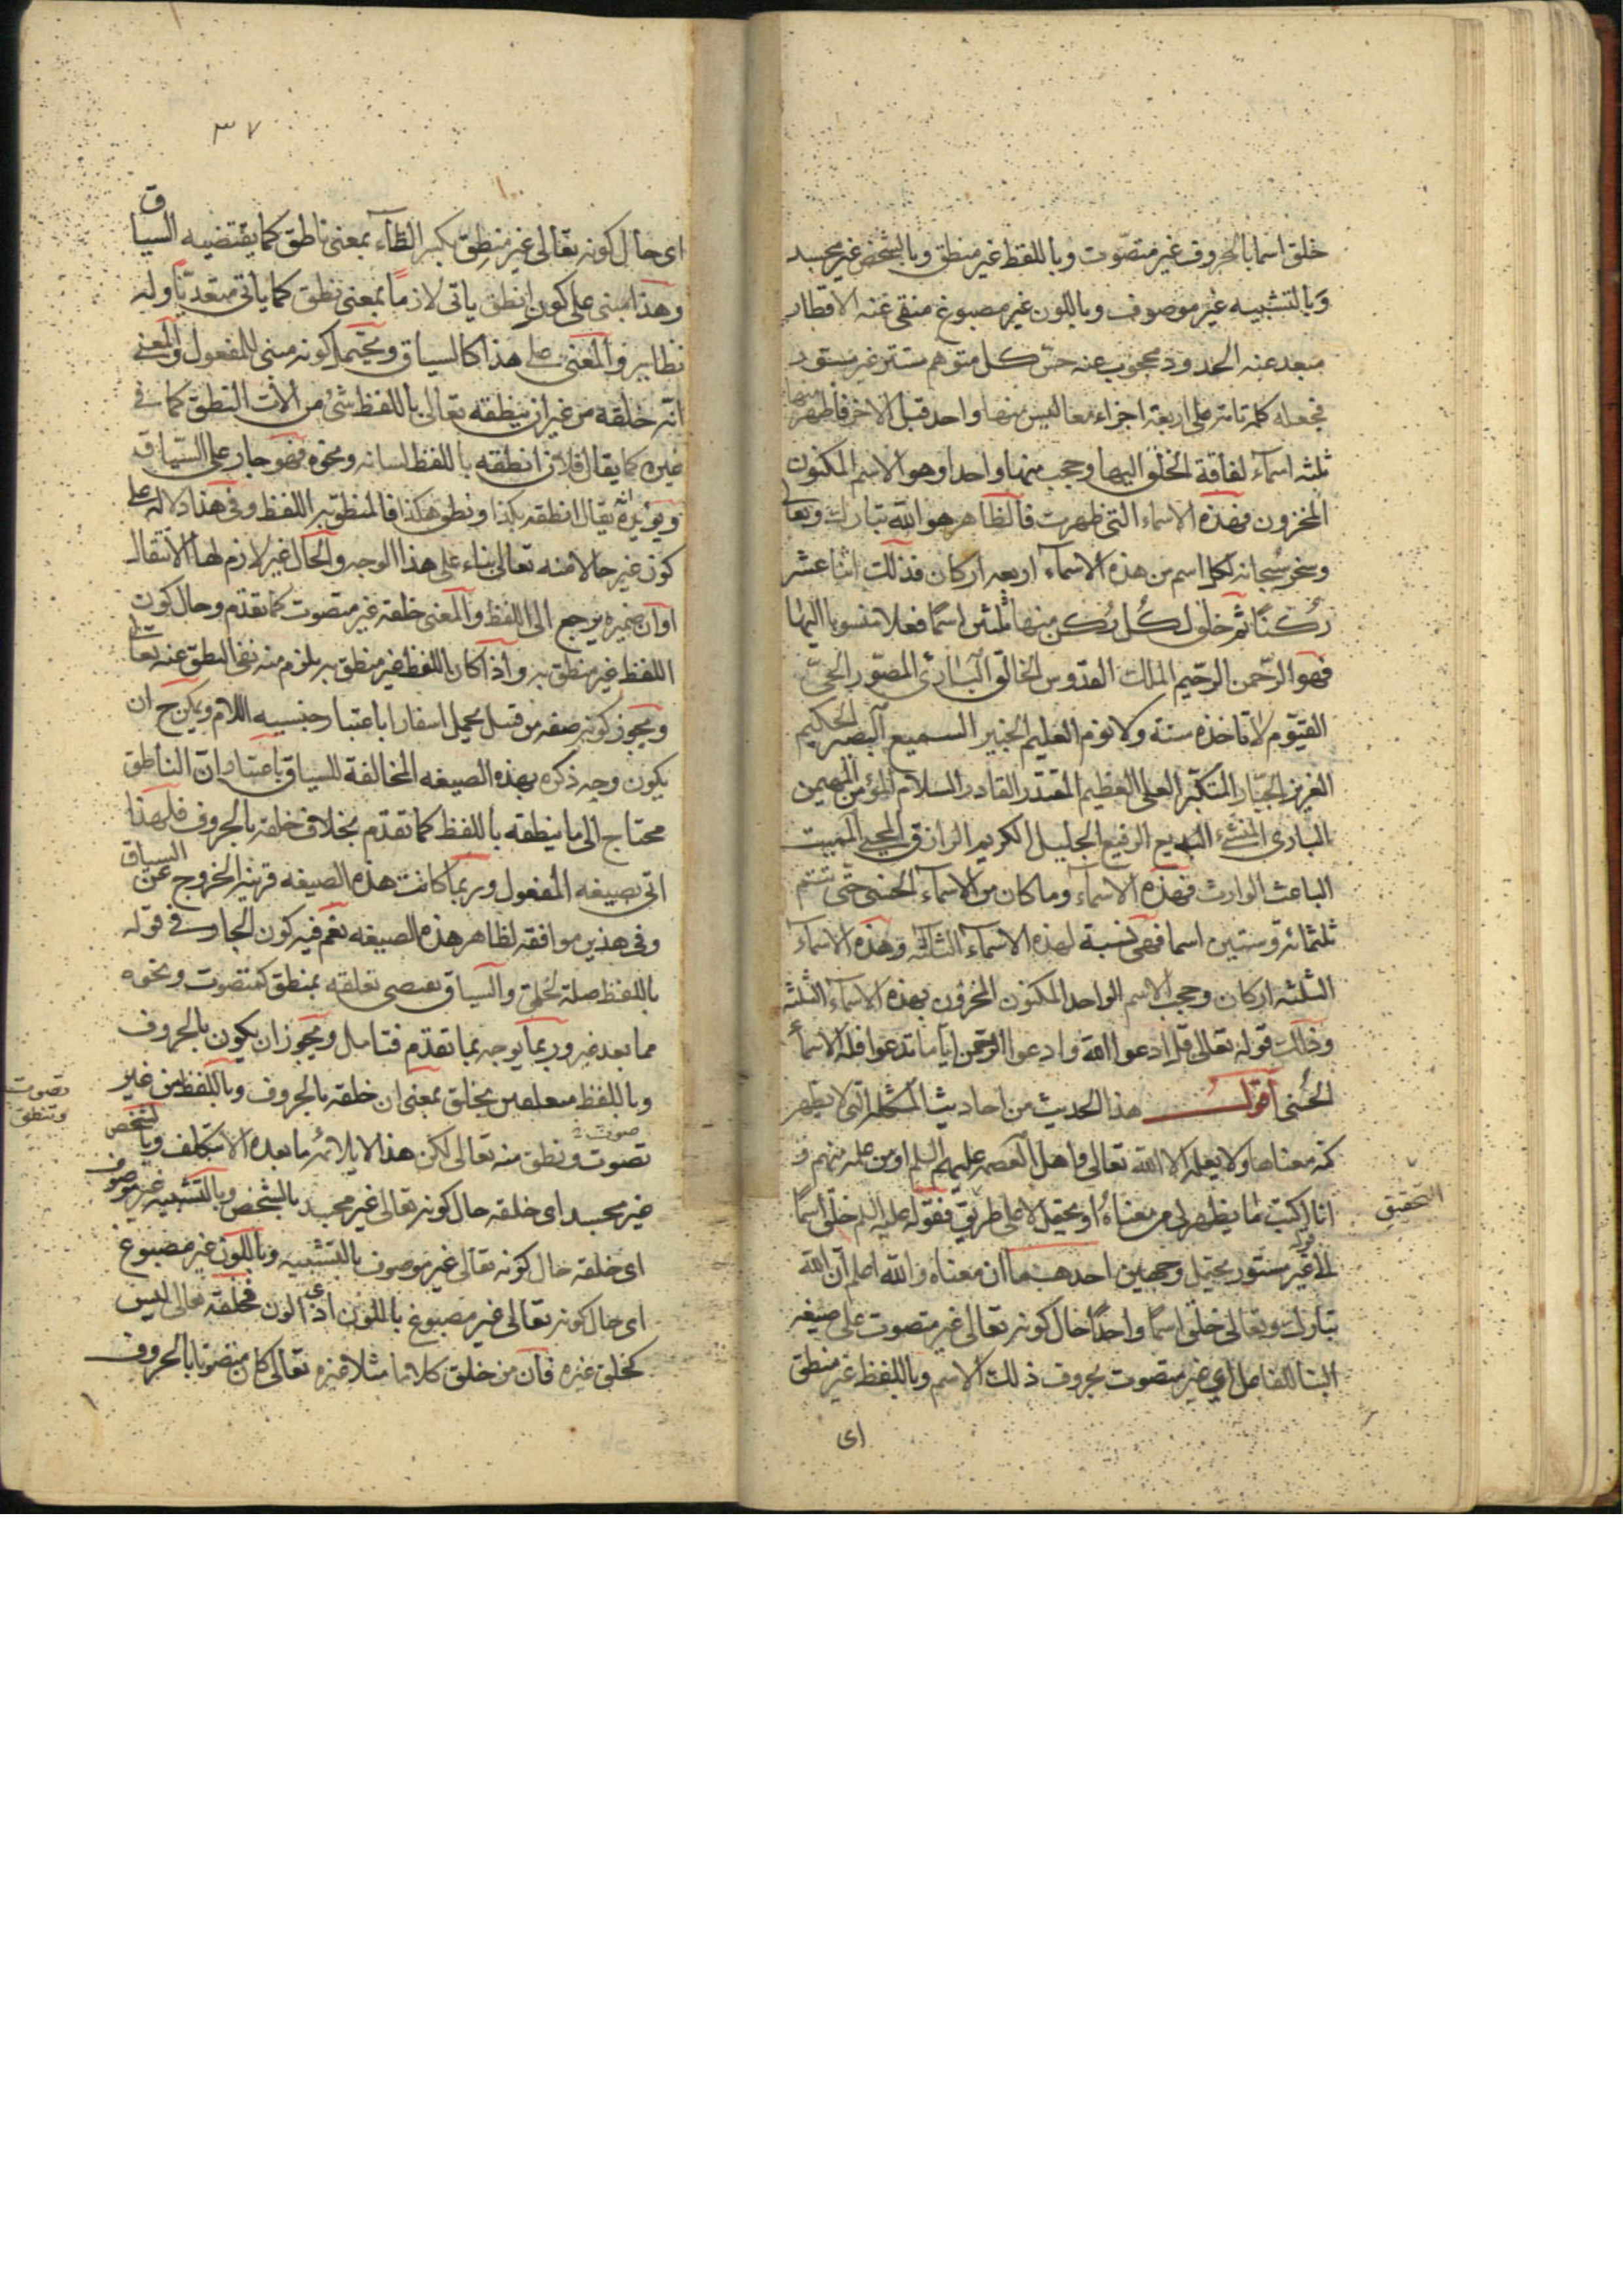 خلق اسما بالحروف غير متصوّت وباللفظ غير منطق وبالشخص غير مجسد
وبالتشبيه غير موصوف وباللون غير مصبوغ منفى عنه الاقطار
مبعد عنه الحدود محجوب عنه حسّ كل متوهم مستتر غير مستور
فجعله كلمة تامة على اربعة اجزاء معا ليس منها واحد قبل الاخر فاظهر منها
ثلثة اسماء لفاقة الخلق اليها وحجب منها واحدا وهو الاسم المكنون
المخزون فهذه الاسماء التى ظهرت فالظاهر هو الله تبارك وتعالى
وسخر سبحانه لكل اسم من هذه الاسماء اربعة اركان فذلك اثنا عشر
ركنًا ثم خلق لكُل رُكن منها ثلثين اسمًا فعلا منسوبا اليها
فهو الرّحمن الرّحيم الملك القدّوس الخالق البارئ المصوّر الحىّ
القيّوم لا تاخذه سنة ولا نوم العليم الخبير السميع البصير الحكيم
العزيز الجبّار المتكبّر العلى العظيم المقتدر القادر السلام المؤمن المهيمن
البارى المنشئ البديع الرفيع الجليل الكريم الرازق المحيى المميت
الباعث الوارث فهذه الاسماء وما كان من الاسماء الحسنى حتّى تتم
ثلثمائة وستين اسما فهى نسبة لهذه الاسماء الثلثة وهذه الاسماء
الثلثة اركان وحجب الاسم الواحد المكنون المخزون بهذه الاسماء الثلثة
وذلك قوله تعالى قل ادعوا الله وادعوا الرّحمن ايّا ما تدعوا فله الاسماء
الحُسنى اقول هذا الحديث من احاديث المشكلة التى لا يظهر
كنه معناها ولا يعلمه الا الله تعالى واهل العصمة عليهم السلم او من علمه منهم و
انا اكتب ما يظهر لى من معناهُ او يحتمل لا على طريق فقوله عليه السلم خلق اسمًا
التحقيق
الى قوله غير مستور يحتمل وجهين احدهما ان معناه والله اعلم ان الله
تبارك وتعالى خلق اسمًا واحدًا حال كونه تعالى غير متصوت على صيغة
البنا للفاعل اى غير متصوت بحروف ذلك الاسم وباللفظ غير منطق
اى
٣٧
اى حال كونه تعالى غير منطِق بكسر الطاء بمعنى ناطق كما يقتضيه السياق
وهذا مبنى على كون انطق ياتى لازمًا بمعنى نطق كما ياتى متعديًا وله
نظاير والمعنى على هذا كالسياق ويحتمل كونه مبنى للمفعول والمعنى
انّه خلقه من غير ان ينطقه تعالى باللفظ شئ من الات النطق كما فى
غيره كما يقال فلان انطقه باللفظ لسانه ونحوه فهو جار على السياق
ويؤيّده انه يقال انطقه بكذا ونطق هكذا فالمنطق به اللفظ وفى هذا دلالة على
كون غير حالا منه تعالى بناء على هذا الوجه والحال غير لازم لها الانتقال
او ان ضميره يرجع الى اللفظ والمعنى خلقه غير متصوت كما تقدّم وحال كون
اللفظ غير منطق به واذا كان اللفظ غير منطق به يلزم منه نفى النطق عنه تعالى
ويجوز كونه صفه من قبيل يحمل اسفارا باعتبار جنسيه اللام ويمكن ح ان
يكون وجه ذكره بهذه الصيغه المخالفة للسياق باعتبار ان الناطق
محتاج الى ما ينطقه باللفظ كما تقدّم بخلاف خلقه بالحروف فلهذا
اتى بصيغه المفعول وربما كانت هذه الصيغه قرينة الخروج عن السياق
وفى هذين موافقه لظاهر هذه الصيغه نعم فيه كون الجار فى قوله
باللفظ صلة لخلق والسياق يقتضى تعلقه بمنطق كمتصوت ونحوه
مما بعد غير وربما يوجه بما تقدّم فتامل ويجوز ان يكون بالحروف
وباللفظ متعلقين بخلق بمعنى ان خلقه بالحروف وباللفظ من غير
تصوت
وتنطق
تصوت ونطق منه تعالى لكن هذا لا يلائم ما بعده الا بتكلف وبالشخص
غير مجسد اى خلقه حال كونه تعالى غير مجسد بالشخص وبالتشبيه غير موصوف
اى خلقه حال كونه تعالى غير موصوف بالتشبيه وباللون غير مصبوغ
اى حال كونه تعالى غير مصبوغ باللون اى ذى الون فخلقه تعالى ليس
كخلق غيره فان من خلق كلاما مثلا غيره تعالى كان متصوتا بالحروف